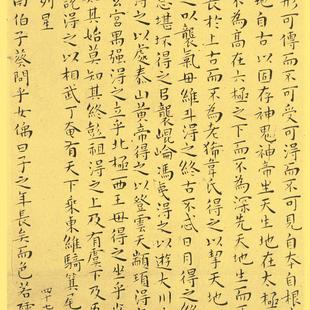 形可傳而不可受可得而不可見自本自根
地自古以固存神鬼神帝生天生地在太極
不為高在六極之下而不為深先天地生
長於上古而不為老韋氏得之以挈天地
之以襲氣母維斗得之終古不忒日月得之終
息堪坏得之以襲崐崘馮夷得之以遊大川
得之以處泰山黃帝得之以登雲天顓頊得
玄宮禺強得之立乎北極西王母得之坐乎
其始莫知其終彭祖得之上及有虞下及五
說得之以相武丁奄有天下乘東維騎箕尾
列星
南伯子葵問乎女偊曰子之年長矣而色若孺
四十七